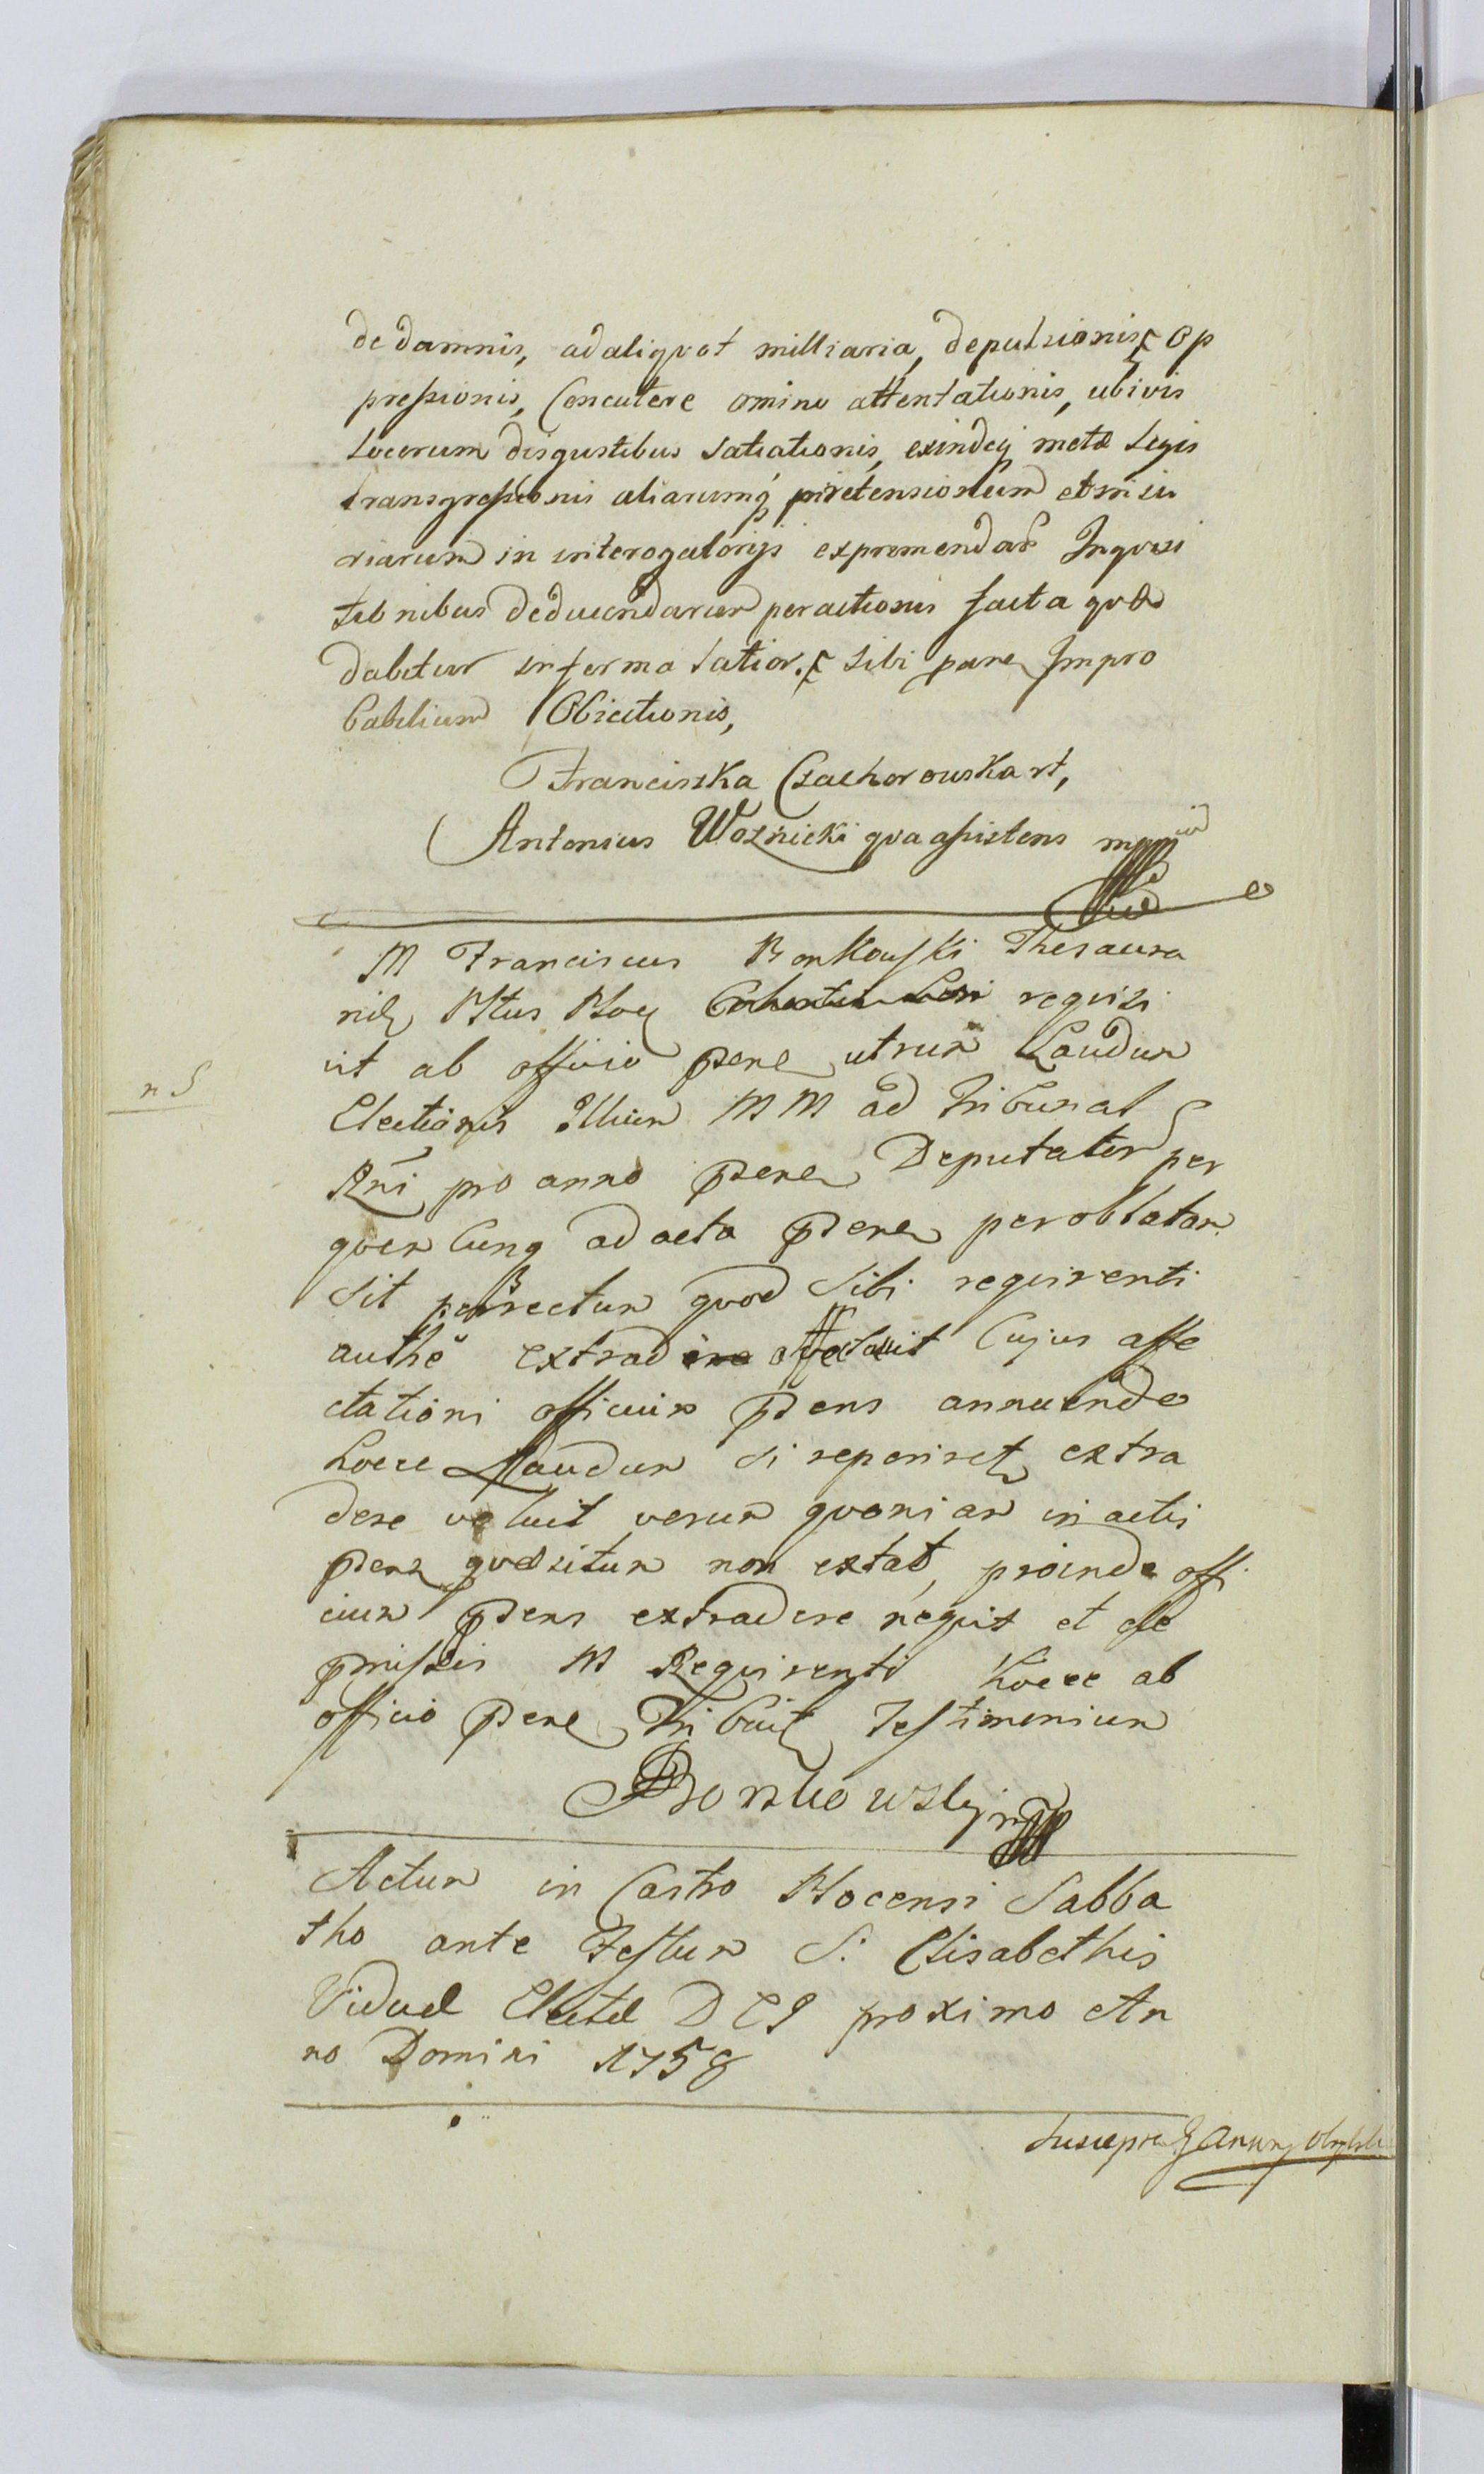 de damnis, ad aliqvot milliaria, depulsionis, Op
pressionis, Concutere omino attentationis, ubivis
locorum disgustibus satiationis, exindeq metæ Legis
transgressionis aliarumq prætensionum et iniu
riarum in interogatorijs expremendar Inqvisi
tionibus deducendarum peractionis facta qvæ
dabitur in forma latior. sibi paren Impro
babilium Obiectionis,
Franciszka Czachorowska rt,
Antonius Woznicki qva assistens mpp
M Franciscus Bonkowski Thesaura
rid Pltus Ploc requisi
vit ab officio psene utrum Laudum
Electionis Illium MM ad Tribunal
Rni pro anno psene Deputator per
qvem cunq ad acta psene per oblatam
sit porrectum qvod sibi reqvirenti
authe extradere affectavit Cujus affe
ctationi officium psens annuendo
hocce Laudum si reperiret extra
dere voluit verum qvoniam in actis
psene qvæsitum non extat, proinde offi
cium psens extradere neqvit et de
pmissis M Reqvirenti hocce ab
officio psene Tribuit Testimonium
Bonkowsky mpp
n S
Actum in Castro Plocensi Sabba
tho ante Festum S. Elisabethis
Viduæ Electæ D C I proximo An
no Domini 1758